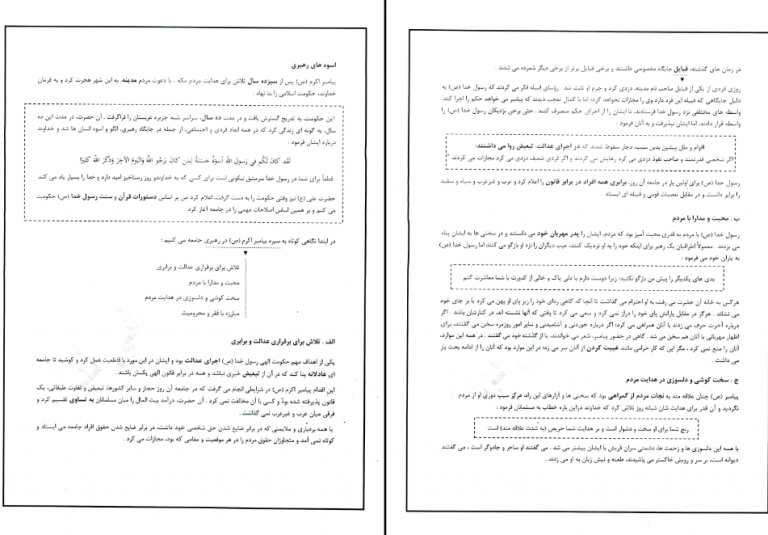 اسوه های رهبری
پیامبر اکرم (ص) پس از سیزده سال تلاش برای هدایت مردم مکه ، با دعوت مردم مدینه، به این شهر هجرت کرد و به فرمان
خداوند، حکومت اسلامی را بنا نهاد .
این حکومت، به تدریج گسترش یافت و در مدت ده سال، سراسر شبه جزیره عربستان را فراگرفت . آن حضرت، در مدت این ده
سال، به گونه ای زندگی کرد که در همه ابعاد فردی و اجتماعی، از جمله در جایگاه رهبری، الگو و اسوه انسان ها شد و خداوند
درباره ایشان فرمود :
لَقَد كانَ لَكُم فی رَسولِ اللهِ اُسوَةٌ حَسَنَةٌ لِمَن كانَ یَرجُو اللهَ وَالیَومَ الآخِرَ وَذَكَرَ اللهَ كَثیرًا
قطعاً برای شما در رسول خدا سرمشق نیکویی است برای کسی که به خداوندو روز رستاخیز امید دارد و خدا را بسیار یاد می کند
حضرت علی (ع) نیز وقتی حکومت را به دست گرفت، اعلام کرد من بر اساس دستورات قرآن و سنت رسول خدا (ص) حکومت
می کنم و بر همین اساس اصلاحات مهمی را در جامعه آغاز کرد.
در ابتدا نگاهی کوتاه به سیره پیامبر اکرم (ص) در رهبری جامعه می کنیم :
تلاش برای برقراری عدالت و برابری
محبت و مدارا با مردم
سخت کوشی و دلسوزی در هدایت مردم
مبارزه با فقر و محرومیت
الف . تلاش برای برقراری عدالت و برابری
یکی از اهداف مهم حکومت الهی رسول خدا (ص) اجرای عدالت بود و ایشان در این مورد با قاطعیت عمل کرد و کوشید تا جامعه
ای عادلانه بنا کند که در آن از تبعیض خبری نباشد و همه در برابر قانون الهی یکسان باشند .
این اقدام پیامبر اکرم (ص) در شرایطی انجام می گرفت که در جامعه آن روز حجاز و سایر کشورها، تبعیض و تفاوت طبقاتی، یک
قانون پذیرفته شده بود و کسی با آن مخالفت نمی کرد . آن حضرت، درآمد بیت المال را میان مسلمانان به تساوی تقسیم کرد و
فرقی میان عرب و غیرعرب نمی گذاشت .
با همه بردباری و ملایمتی که در برابر ضایع شدن حق شخصی خود داشت، در برابر ضایع شدن حقوق افراد جامعه می ایستاد و
کوتاه نمی آمد و متجاوزان حقوق مردم را در هر موقعیت و مقامی که بود، مجازات می کرد .
در زمان های گذشته، قبایل جایگاه مخصوصی داشتند و برخی قبایل برتر از برخی دیگر شمرده می شدند .
روزی فردی از یکی از قبایل صاحب نام مدینه، دزدی کرد و جرم او ثابت شد . رؤسای قبیله فکر می کردند که رسول خدا (ص) به
دلیل جایگاهی که قبیله این فرد دارد وی را مجازات نخواهد کرد؛ اما با کمال تعجب دیدند که پیامبر می خواهد حکم را اجرا کند.
واسطه های مختلفی نزد رسول خدا فرستادند، تا ایشان را از اجرای حکم منصرف کنند . حتی برخی نزدیکان رسول خدا (ص) را
واسطه قرار دادند، اما ایشان نپذیرفت و به آنان فرمود :
اقوام و ملل پیشین بدین سبب، دچار سقوط شدند که در اجرای عدالت، تبعیض روا می داشتند؛
اگر شخصی قدرتمند و صاحب نفوذ دزدی می کرد رهایش می کردند و اگر فردی ضعیف دزدی می کرد مجازات می کردند
رسول خدا (ص) برای اولین بار در جامعه آن روز، برابری همه افراد در برابر قانون را اعلام کرد و عرب و غیرعرب و سیاه و سفید
را برابر دانست و در مقابل تعصبات قومی و قبیله ای ایستاد
ب . محبت و مدارا با مردم
رسول خدا (ص) با مردم به قدری محبت آمیز بود که مردم، ایشان را پدر مهربان خود می دانستند و در سختی ها به ایشان پناه
می بردند . معمولاً اطرافیان یک رهبر برای اینکه خود را به او نزدیک کنند، عیب دیگران را نزد او بازگو می کنند؛ اما رسول خدا (ص)
به یاران خود می فرمود :
بدی های یکدیگر را پیش من بازگو نکنید؛ زیرا دوست دارم با دلی پاک و خالی از کدورت با شما معاشرت کنم
هرکس به خانه آن حضرت می رفت، به او احترام می گذاشت تا آنجا که گاهی ردای خود را زیر پای او پهن می کرد یا بر جای خود
می نشاند . هرگز در مقابل یارانش پای خود را دراز نمی کرد و سعی می کرد تا وقتی که آنها نشسته اند، در کنارشان باشد . اگر
درباره آخرت حرف می زدند با آنان همراهی می کرد؛ اگر درباره خوردنی و آشامیدنی و سایر امور روزمره سخن می گفتند، برای
اظهار مهربانی با آنان هم سخن می شد . گاهی در حضور پیامبر، شعر می خواندند، یا از گذشته خود می گفتند . در همه این موارد،
آنان را منع نمی کرد ، مگر این که کار حرامی مانند غیبت کردن از آنان سر می زد؛ در این موارد بود که آنان را از ادامه بحث باز
می داشت .
ج . سخت کوشی و دلسوزی در هدایت مردم
پیامبر (ص) چنان علاقه مند به نجات مردم از گمراهی بود که سختی ها و آزارهای این راه، هرگز سبب دوری او از مردم
نگردید و آن قدر برای هدایت شان شبانه روز تلاش کرد که خداوند دراین باره خطاب به مسلمانان فرمود :
رنج شما برای او سخت و دشوار است و بر هدایت شما حریص (به شدت علاقه مند) است
با همه این دلسوزی ها و زحمت ها، دشمنی سران قریش با ایشان بیشتر می شد . می گفتند او ساحر و جادوگر است ، می گفتند
دیوانه است، بر سر و رویش خاکستر می پاشیدند، طعنه و نیش زبان به او می زدند .